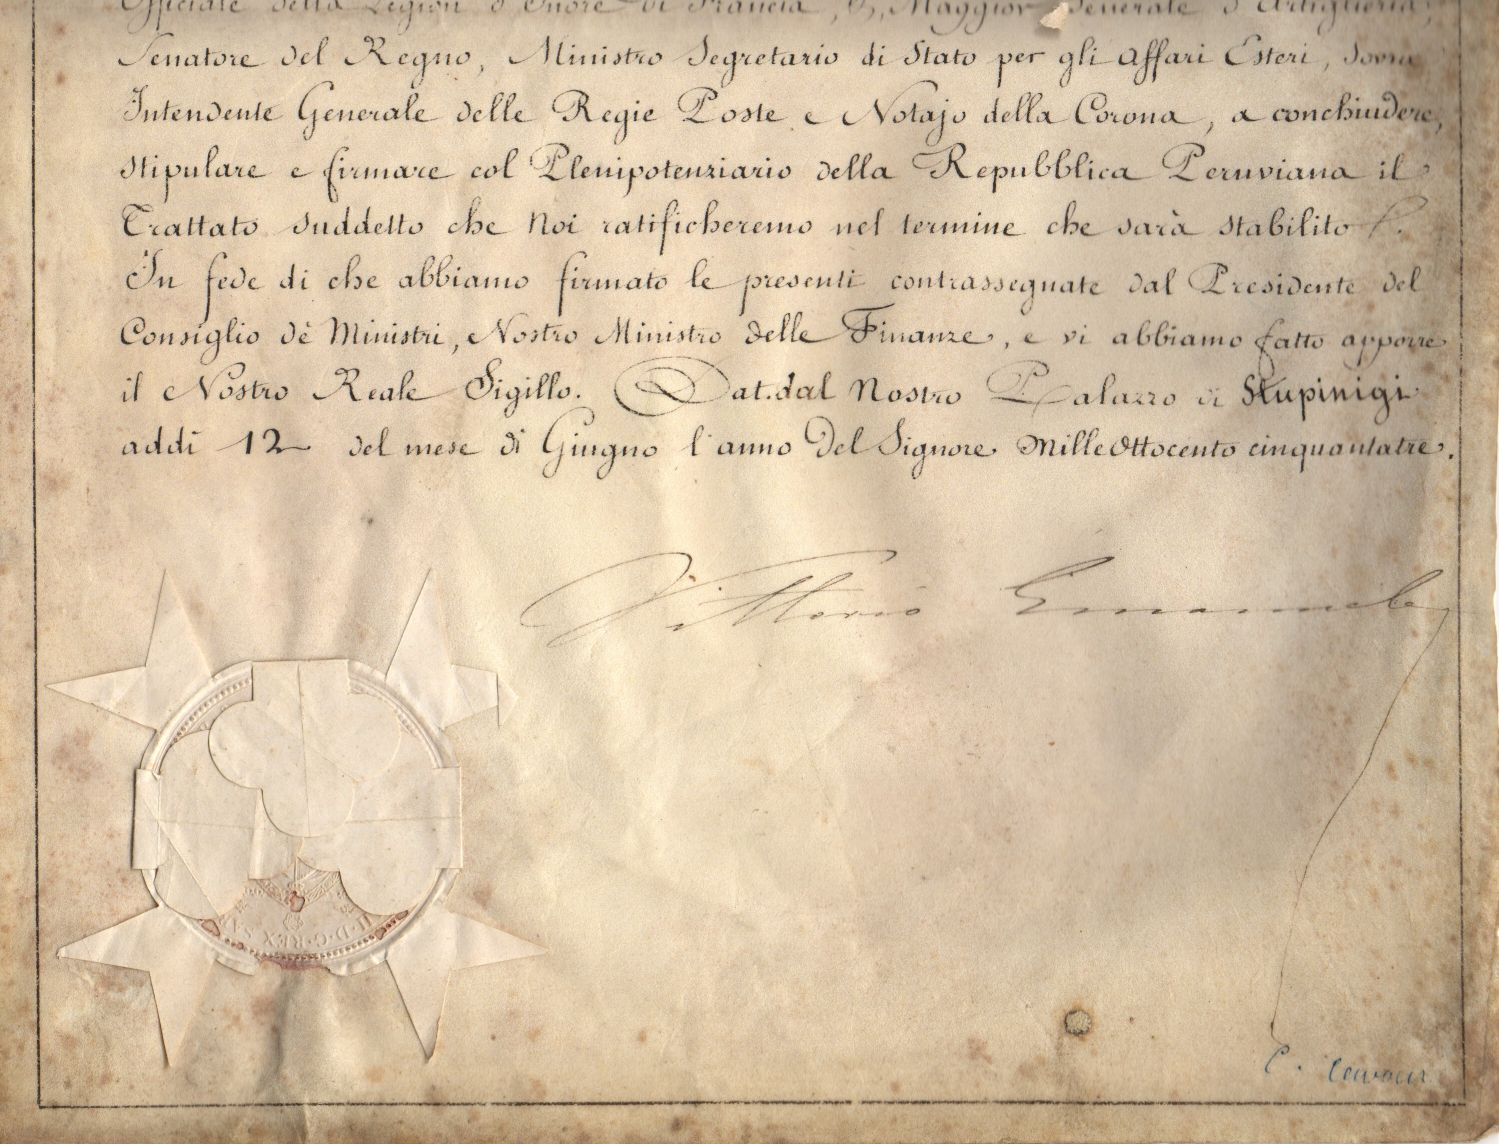 Officiale della Legion d'Onore di Francia, Maggior Generale d'Artiglieria,
Senatore del Regno, Ministro Segretario di Stato per gli Affari Esteri, Sovra
Intendente Generale delle Regie Poste e Notajo della Corona, a conchiudere,
stipulare e firmare col Plenipotenziario della Repubblica Peruviana il
Trattato suddetto che Noi ratificheremo nel termine che sarà stabilito
In fede di che abbiamo firmato le presenti contrassegnate dal Presidente del
Consiglio dè Ministri, Nostro Ministro delle Finanze, e vi abbiamo fatto apporre
il Nostro Reale Sigillo. Dat. dal Nostro Palazzo di Stupinigi
addì 12 del mese di Giugno l'anno Del Signore Mille Ottocento cinquantatre.
Vittorio Emanuele
II · D · G · REX · SA
C. Cavour